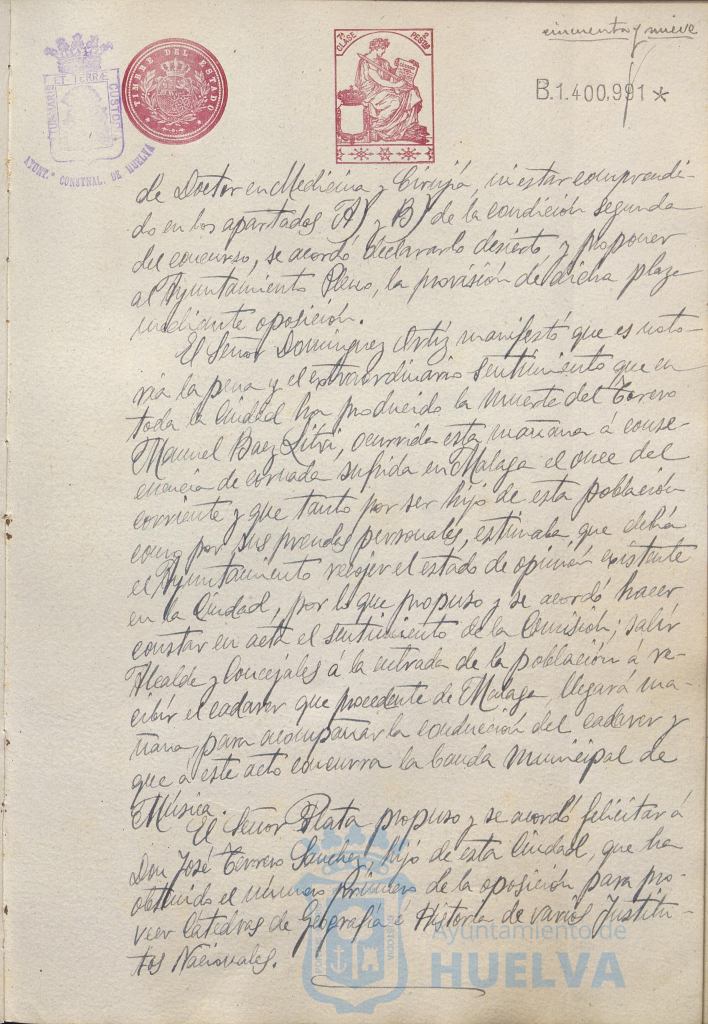 cincuenta y nueve
7ª CLASE
2 PESETAS
TIMBRE DEL ESTADO
B.1.400.991 *
PORTUS MARIS ET TERRÆ CUSTODIA
AYUNT.º CONSTNAL. DE HUELVA
de Doctor en Medicina y Cirujía, ni estar comprendi-
do en los apartados A) y B) de la condición segunda
del concurso, se acordó declararlo desierto y proponer
al Ayuntamiento Pleno, la provisión de dicha plaza
mediante oposición.
El Señor Domínguez Ortiz manifestó que es noto-
ria la pena y el extraordinario sentimiento que en
toda la Ciudad ha producido la muerte del torero
Manuel Baez Litri, ocurrida esta mañana á conse-
cuencia de cornada sufrida en Malaga el once del
corriente y que tanto por ser hijo de esta población
como por sus prendas personales, estimaba que debía
el Ayuntamiento recojer el estado de opinión existente
en la Ciudad, por lo que propuso y se acordó hacer
constar en acta el sentimiento de la Comisión; salir
Alcalde y Concejales á la entrada de la población á re-
cibir el cadaver que procedente de Malaga llegará ma-
ñana, para acompañar la conducción del cadaver y
que a este acto concurra la banda municipal de
Música.
El Señor Plata propuso y se acordó felicitar á
Don José Terrero Sanchez, hijo de esta Ciudad, que ha
obtenido el número primero de la oposición para pro-
veer Cátedras de Geografía é Historia de varios Institu-
tos Nacionales.
Ayuntamiento de
HUELVA